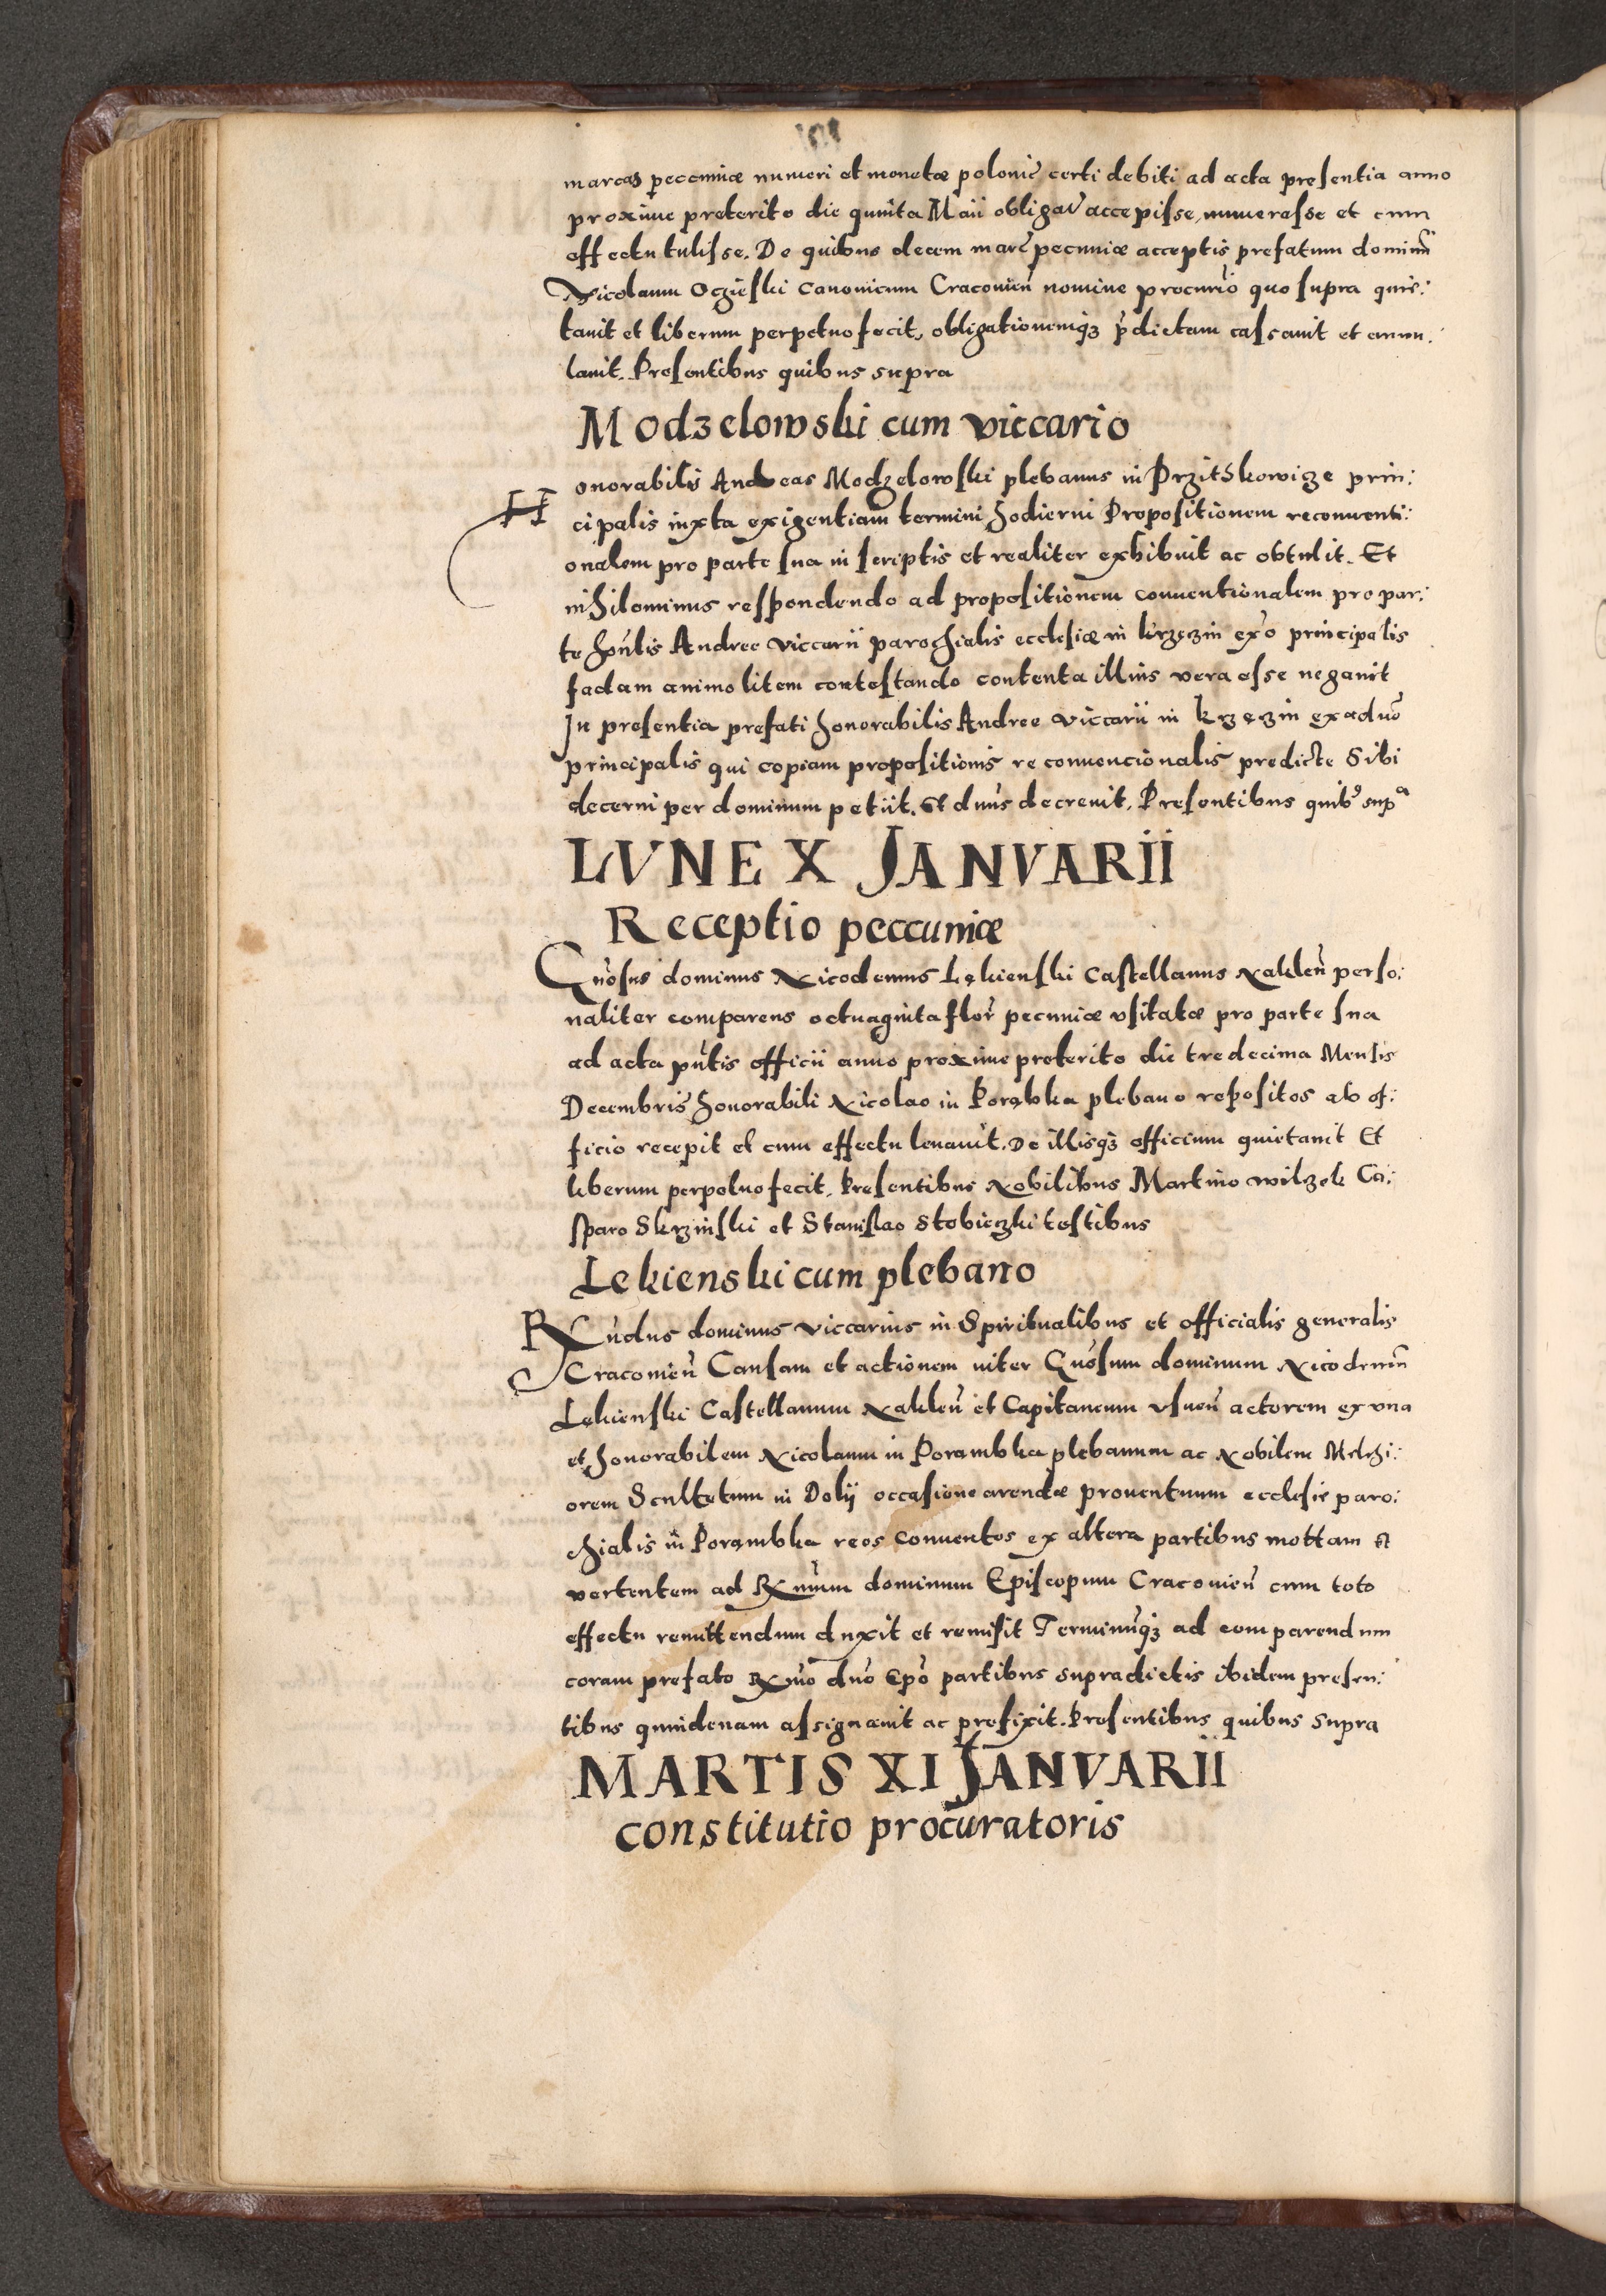 marcas peccuniæ numeri et monetæ polonic̄ certi debiti ad acta presentia anno
proxime preterito die quinta Maii obligat̄ accepisse, numerasse et cum
effectu tulisse. De quibus decem marc̄ pecuniæ acceptis prefatum dominū
Nicolaum Oczieski Canonicum Cracovien̄ nomine procur̄io quo supra quie:
tavit et liberum perpetuo fecit, obligationemq3 p̄dictam cassavit et annu:
lavit. Presentibus quibus supra
Modzelowski cum viccario
Honorabilis Andreas Modzelowski plebanus in Przitskowicze prin:
cipalis iuxta exigentiam termini hodierni Propositionem reconventi:
onalem pro parte sua in scriptis et realiter exhibuit ac obtulit. Et
nihilominus respondendo ad propositionem conventionalem pro par:
te hon̄lis Andree viccarii parochialis ecclesiæ in krzęczin ex̄o principalis
factam animo litem contestando contenta illius vera esse negavit
In presentia prefati honorabilis Andree viccarii in krzęczin ex adūo
principalis qui copiam propositionis reconvencionalis predicte Sibi
decerni per dominum petiit. Et dn̄us decrevit. Presentibus quib9 supᵃ
LVNE X JANVARII
Receptio peccuniæ
Gn̄osus dominus Nicodemus Lękienski Castellanus Naklen̄ perso:
naliter comparens octuaginta flor̄ pecuniæ vsitatæ pro parte sua
ad acta pn̄tis officii anno proxime preterito die tredecima Mensis
Decembris honorabili Nicolao in Porąbka plebano repositos ab of:
ficio recepit et cum effectu levavit. De illisq3 officium quietavit Et
liberum perpetuo fecit. Presentibus Nobilibus Martino wilczek Ca:
sparo Skrzinski et Stanislao Stobieczki testibus
Lekienski cum plebano
Rn̄dus dominus viccarius in Spiritualibus et officialis generalis
Cracovien̄ Causam et actionem inter Gn̄osum dominum Nicodemū
Lękienski Castellanum Naklen̄ et Capitaneum vsuen̄ actorem ex vna
et honorabilem Nicolaum in Porambka plebanum ac Nobilem Melchi:
orem Scultetum in Dolij occasione arendæ proventuum ecclesie paro:
chialis in Porąmbka reos conventos ex altera partibus mottam et
vertentem ad Rn̄um dominum Episcopum Cracovien̄ cum toto
effectu remittendum duxit et remisit Terminūq3 ad comparendum
coram prefato Rn̄o dn̄o Ep̄o partibus supradictis ibidem presen:
tibus quindenam assignavit ac prefixit. Presentibus quibus supra
MARTIS XI JANVARII
constitutio procuratoris